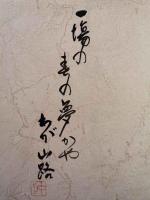 一場の
春の夢かや
わが山路